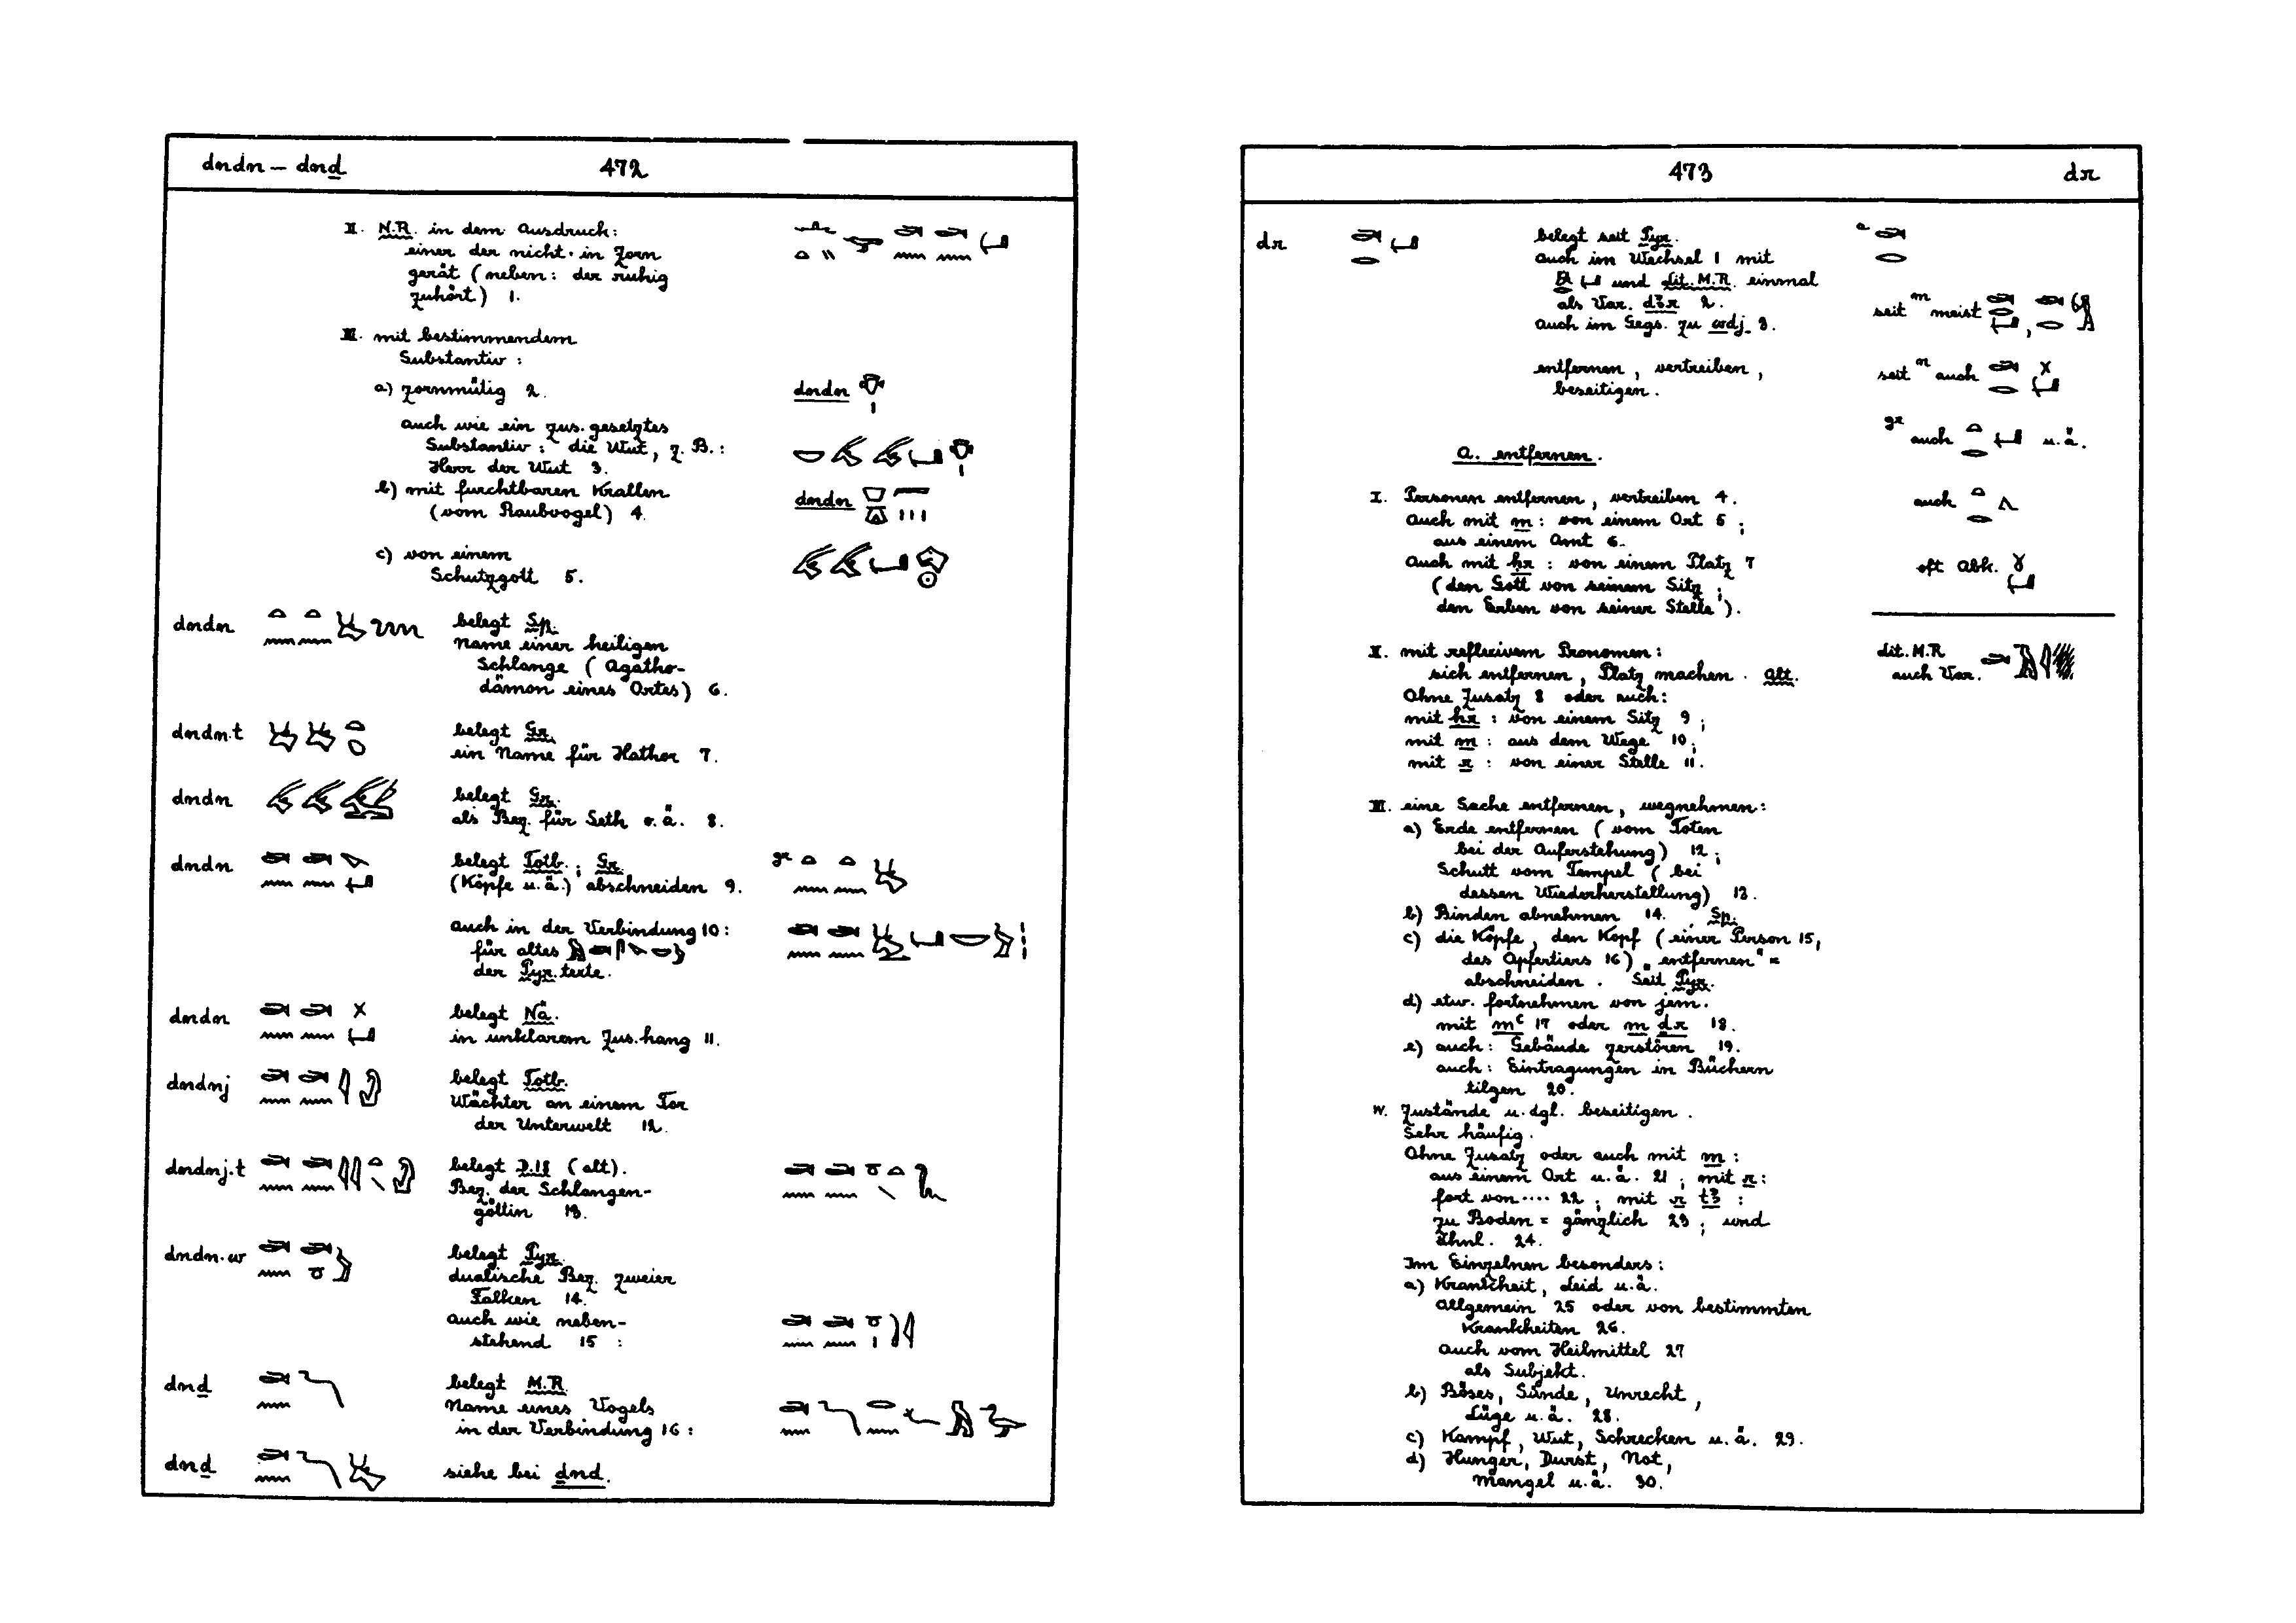 dndn — dnḏ 472
II. N.R. in dem Ausdruck:
einer der nicht in Zorn
gerät (neben: der ruhig
zuhört) 1.
III. mit bestimmendem
Substantiv:
a) zornmütig 2. dndn
auch wie ein zus. gesetztes
Substantiv: die Wut, z. B.:
Herr der Wut 3.
b) mit furchtbaren Krallen dndn
(vom Raubvogel) 4.
c) von einem
Schutzgott 5.
dndn belegt Sp.
Name einer heiligen
Schlange (Agatho-
dämon eines Ortes) 6.
dndn.t belegt Gr.
ein Name für Hathor 7.
dndn belegt Gr.
als Bez. für Seth o.ä. 8.
dndn belegt Totb.; Gr. gr
(Köpfe u.ä.) abschneiden 9.
auch in der Verbindung 10:
für altes
der Pyr. texte.
dndn belegt Nä.
in unklarem Zus.hang 11.
dndnj belegt Totb.
Wächter an einem Tor
der Unterwelt 12.
dndnj.t belegt D.18 (alt).
Bez. der Schlangen-
göttin 13.
dndn.w belegt Pyr.
dualische Bez. zweier
Falken 14.
auch wie neben-
stehend 15 :
dnḏ belegt M.R.
Name eines Vogels
in der Verbindung 16:
dnḏ siehe bei ḏnd.
473 dr
dr belegt seit Pyr. a
auch im Wechsel 1 mit
und dit. M.R. einmal
als Var. dꜣr 2.
auch im Gegs. zu wdj 3. seit m meist ,
entfernen, vertreiben, seit n auch
beseitigen.
gr auch u.ä.
A. entfernen.
I. Personen entfernen, vertreiben 4. auch
Auch mit m: von einem Ort 5;
aus einem Amt 6.
Auch mit ḥr: von einem Platz 7 oft Abk.
(den Gott von seinem Sitz;
den Erben von seiner Stelle).
II. mit reflexivem Pronomen: dit. M.R
sich entfernen, Platz machen. Alt. auch Var.
Ohne Zusatz 8 oder auch:
mit ḥr: von einem Sitz 9;
mit m: aus dem Wege 10;
mit r: von einer Stelle 11.
III. eine Sache entfernen, wegnehmen:
a) Erde entfernen (vom Toten
bei der Auferstehung) 12;
Schutt vom Tempel (bei
dessen Wiederherstellung) 13.
b) Binden abnehmen 14. Sp.
c) die Köpfe, den Kopf (einer Person 15,
des Opfertiers 16) „entfernen" =
abschneiden. Seit Pyr.
d) etw. fortnehmen von jem.
mit mꜥ 17 oder m dr 18.
e) auch: Gebäude zerstören 19.
auch: Eintragungen in Büchern
tilgen 20.
IV. Zustände u. dgl. beseitigen.
Sehr häufig.
Ohne Zusatz oder auch mit m:
aus einem Ort u.ä. 21; mit r:
fort von .... 22; mit r tꜣ :
zu Boden = gänzlich 23; und
Ähnl. 24.
Im Einzelnen besonders:
a) Krankheit, Leid u.ä.
allgemein 25 oder von bestimmten
Krankheiten 26.
Auch vom Heilmittel 27
als Subjekt.
b) Böses, Sünde, Unrecht,
Lüge u.ä. 28.
c) Kampf, Wut, Schrecken u.ä. 29.
d) Hunger, Durst, Not,
Mangel u.ä. 30.